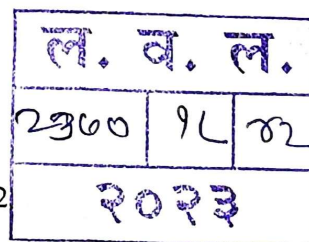 ल. व. ल.
२३७० १८ ४२
2 २०२३